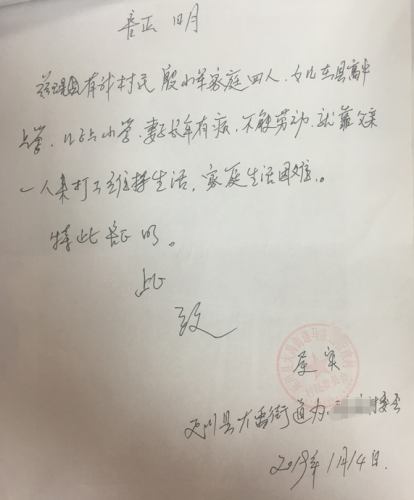 证明
兹证明有我村村民殷小军家庭四人，女儿在县高中
上学，儿子上小学，妻子长年有病，不能劳动，就靠父亲
一人来打工维持生活，家庭生活困难。
特此证明。
此
致
属实
县 街道办 村委会
2019年1月14日.